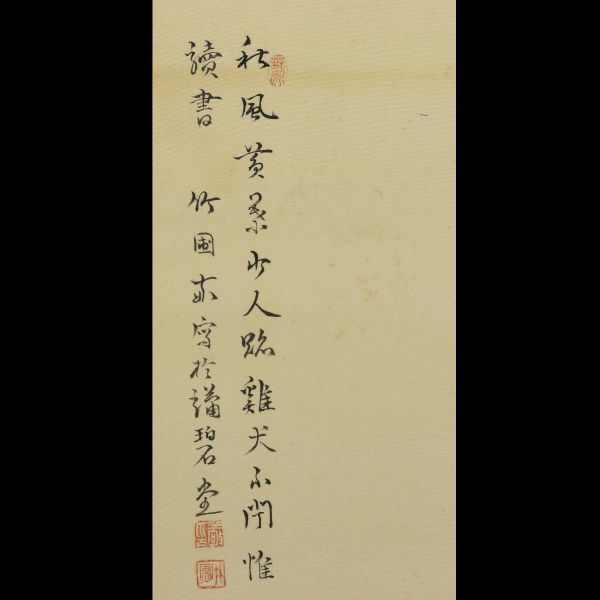 秋風黃葉少人跡雞犬不聞惟
讀書 竹圃 寫於碧堂